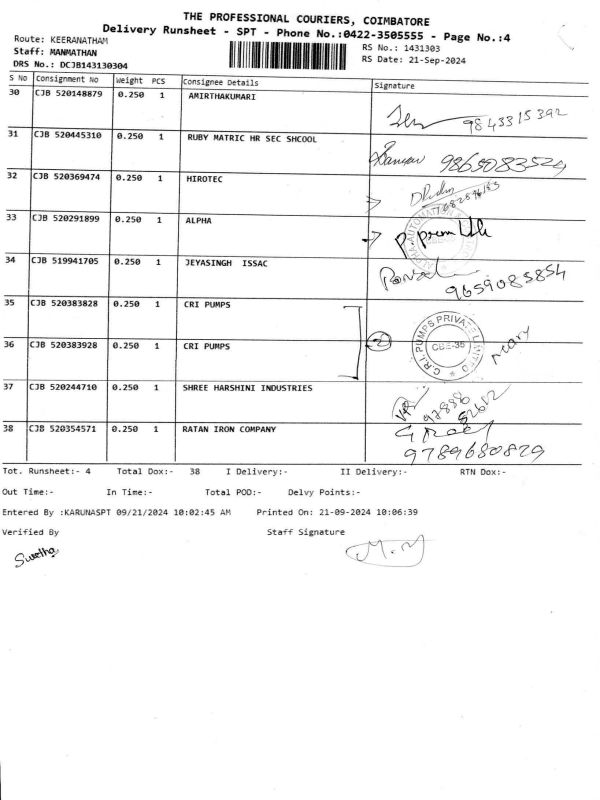 THE PROFESSIONAL COURIERS, COIMBATORE
Delivery Runsheet - SPT - Phone No.:0422-3505555 - Page No.:4
Route: KEERANATHAM
RS No.: 1431303
Staff: MANMATHAN
RS Date: 21-Sep-2024
DRS No.: DCJB143130304
S No Consignment No Weight PCS Consignee Details Signature
30 CJB 520148879 0.250 1 AMIRTHAKUMARI
9843315392
31 CJB 520445310 0.250 1 RUBY MATRIC HR SEC SHCOOL
9865083529
32 CJB 520369474 0.250 1 HIROTEC
33 CJB 520291899 0.250 1 ALPHA
34 CJB 519941705 0.250 1 JEYASINGH ISSAC
9659085854
35 CJB 520383828 0.250 1 CRI PUMPS
2
C.R.I. PUMPS PRIVATE LIMITED
CBE-35
36 CJB 520383928 0.250 1 CRI PUMPS
37 CJB 520244710 0.250 1 SHREE HARSHINI INDUSTRIES
38 CJB 520354571 0.250 1 RATAN IRON COMPANY
9789680829
Tot. Runsheet:- 4 Total Dox:- 38 I Delivery:- II Delivery:- RTN Dox:-
Out Time:- In Time:- Total POD:- Delvy Points:-
Entered By :KARUNASPT 09/21/2024 10:02:45 AM Printed On: 21-09-2024 10:06:39
Verified By Staff Signature
Swetha
M.M